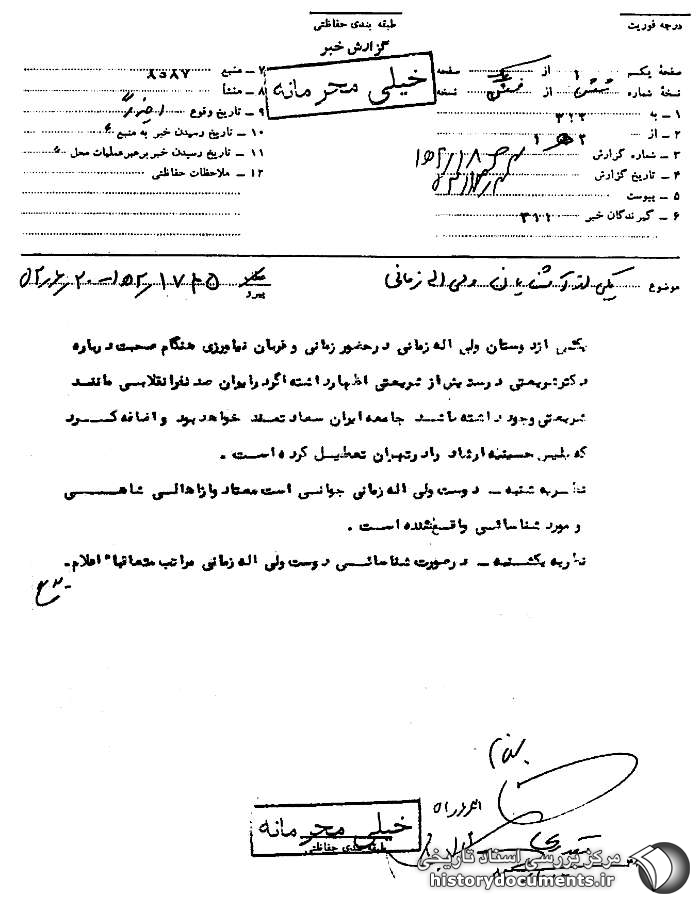 درجه فوریت
طبقه بندی حفاظتی
گزارش خبر
خیلی محرمانه
صفحهٔ یکم از یک صفحه
نسخهٔ شماره از نسخه
۱ – به ۳۱۲
۲ – از ۲ ه‍ ۱
۳ – شماره گزارش
۴ – تاریخ گزارش
۵ – پیوست
۶ – گیرندگان خبر ۳۱۱
۷ – منبع ۸۵۸۷
۸ – منشأ
۹ – تاریخ وقوع اخیراً
۱۰ – تاریخ رسیدن خبر به منبع
۱۱ – تاریخ رسیدن خبر برهبر عملیات محل
۱۲ – ملاحظات حفاظتی
موضوع یکی از آشنایان ولی اله زمانی
پیرو
یکی از دوستان ولی اله زمانی در حضور زمانی و قربان نیاورزی هنگام صحبت درباره
دکتر شریعتی درستایش از شریعتی اظهار داشته اگر در ایران صد نفر انقلابی مانند
شریعتی وجود داشته باشد جامعه ایران سعادتمند خواهد بود و اضافه کرد
که پلیس حسینیه ارشاد را در تهران تعطیل کرده است .
نظریه شنبه – دوست ولی اله زمانی جوانی است معتاد و از اهالی شاهی
و مورد شناسائی واقع نشده است .
نظریه یکشنبه – در صورت شناسائی دوست ولی اله زمانی مراتب متعاقبا" اعلام.
خیلی محرمانه
طبقه بندی حفاظتی
مرکز بررسی اسناد تاریخی
historydocuments.ir